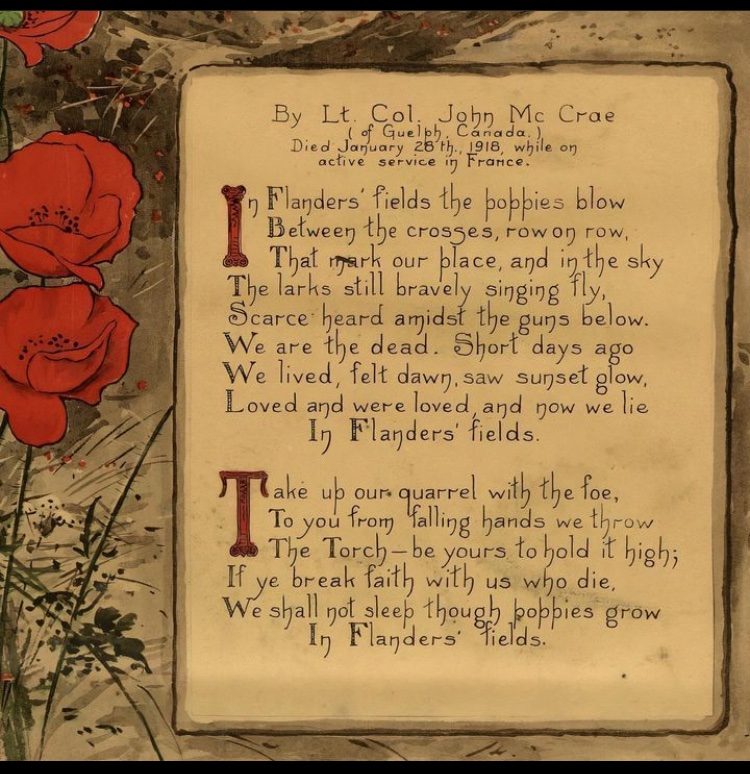 By Lt. Col. John Mc Crae
( of Guelph, Canada. )
Died January 28th., 1918, while on
active service in France.
In Flanders' fields the poppies blow
Between the crosses, row on row,
That mark our place, and in the sky
The larks still bravely singing fly,
Scarce heard amidst the guns below.
We are the dead. Short days ago
We lived, felt dawn, saw sunset glow,
Loved and were loved, and now we lie
In Flanders' fields.
Take up our quarrel with the foe,
To you from falling hands we throw
The Torch – be yours to hold it high;
If ye break faith with us who die,
We shall not sleep though poppies grow
In Flanders' fields.